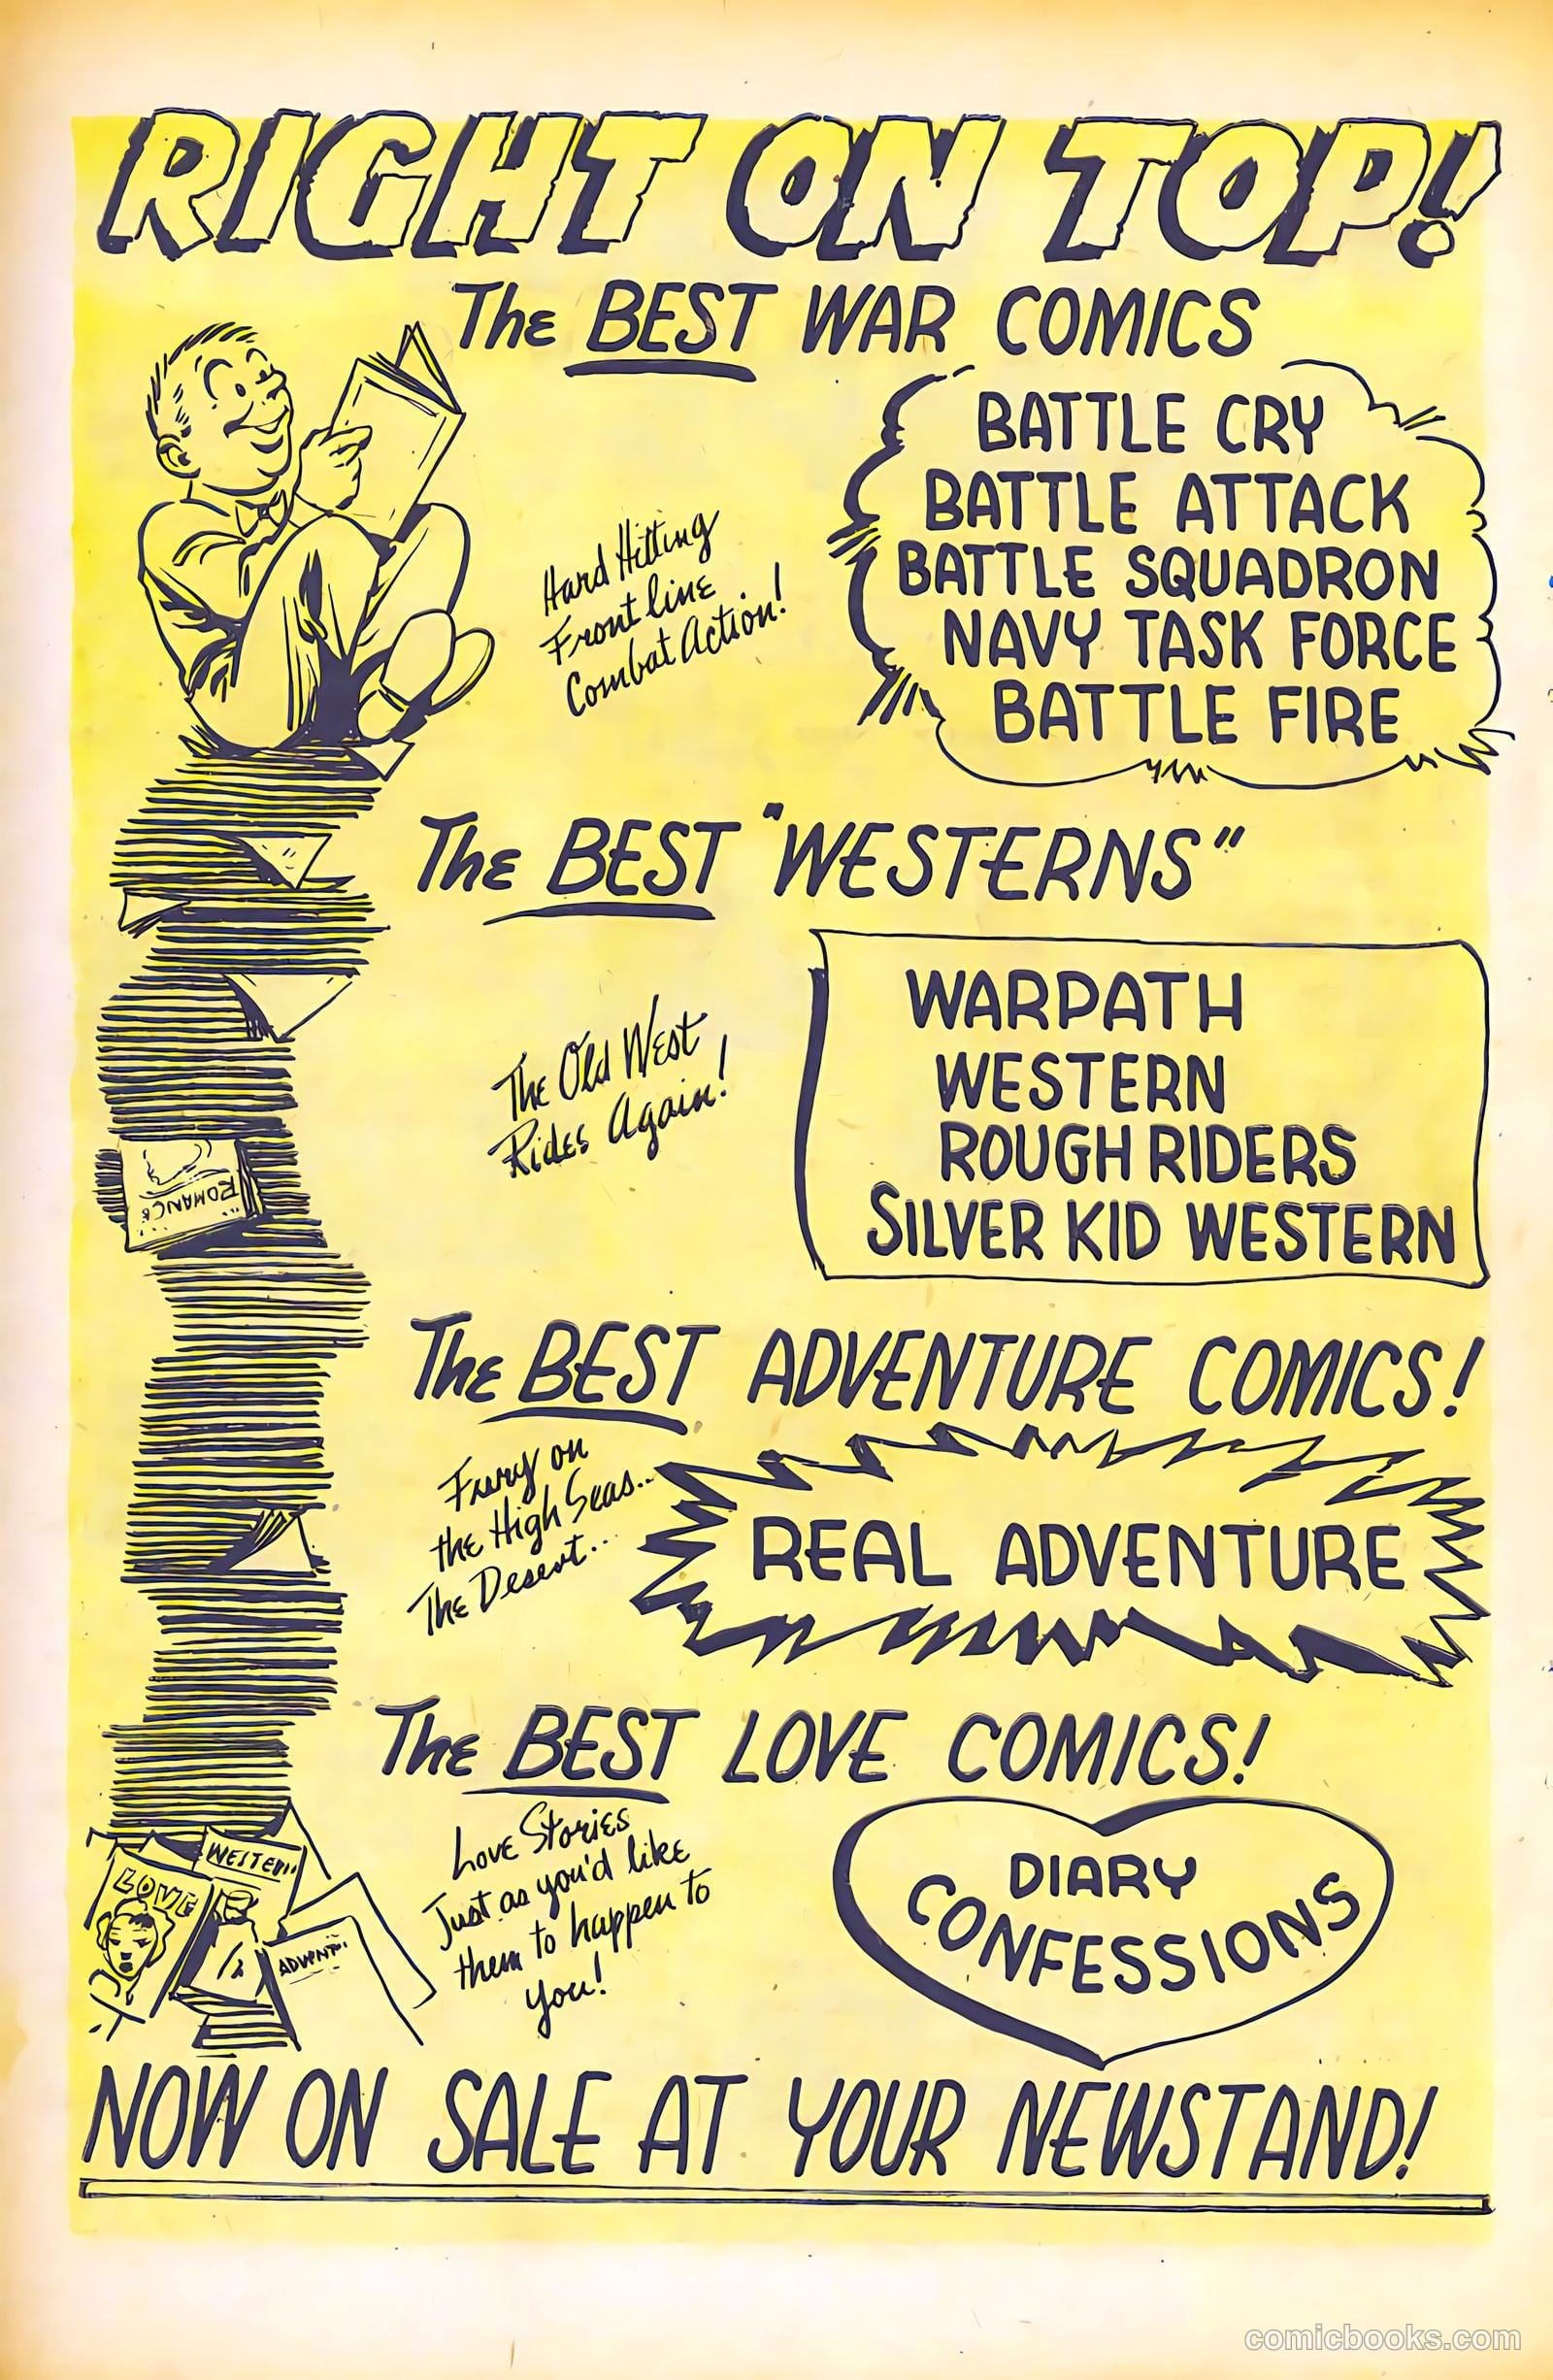 RIGHT ON TOP!
The BEST WAR COMICS
Hard Hitting
Front line
Combat Action!
BATTLE CRY
BATTLE ATTACK
BATTLE SQUADRON
NAVY TASK FORCE
BATTLE FIRE
The BEST "WESTERNS"
The Old West
Rides Again!
WARPATH
WESTERN
ROUGH RIDERS
SILVER KID WESTERN
ROMANCE
The BEST ADVENTURE COMICS!
Fury on
the High Seas..
The Desert..
REAL ADVENTURE
The BEST LOVE COMICS!
Love Stories
Just as you'd like
them to happen to
you!
DIARY
CONFESSIONS
WESTE
LOVE
ADVENT
NOW ON SALE AT YOUR NEWSTAND!
comicbooks.com